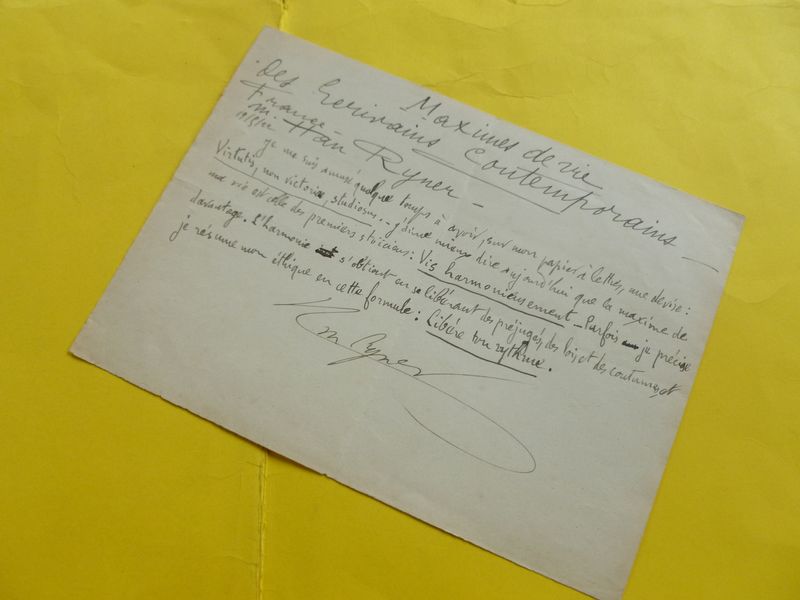 Maximes de vie
des Ecrivains Contemporains –
France –
M. Han Ryner –
19/5/22
Je me suis amusé quelque temps à avoir, sur mon papier à lettres, une devise :
Virtutis, non victoriæ, studiosus. – J'aime mieux dire aujourd'hui que la maxime de
ma vie est celle des premiers stoïciens : Vis harmonieusement – Parfois je précise
davantage. L'harmonie s'obtient en se libérant des préjugés, des lois et des coutumes, et
je résume mon éthique en cette formule : Libère ton rythme.
Han Ryner